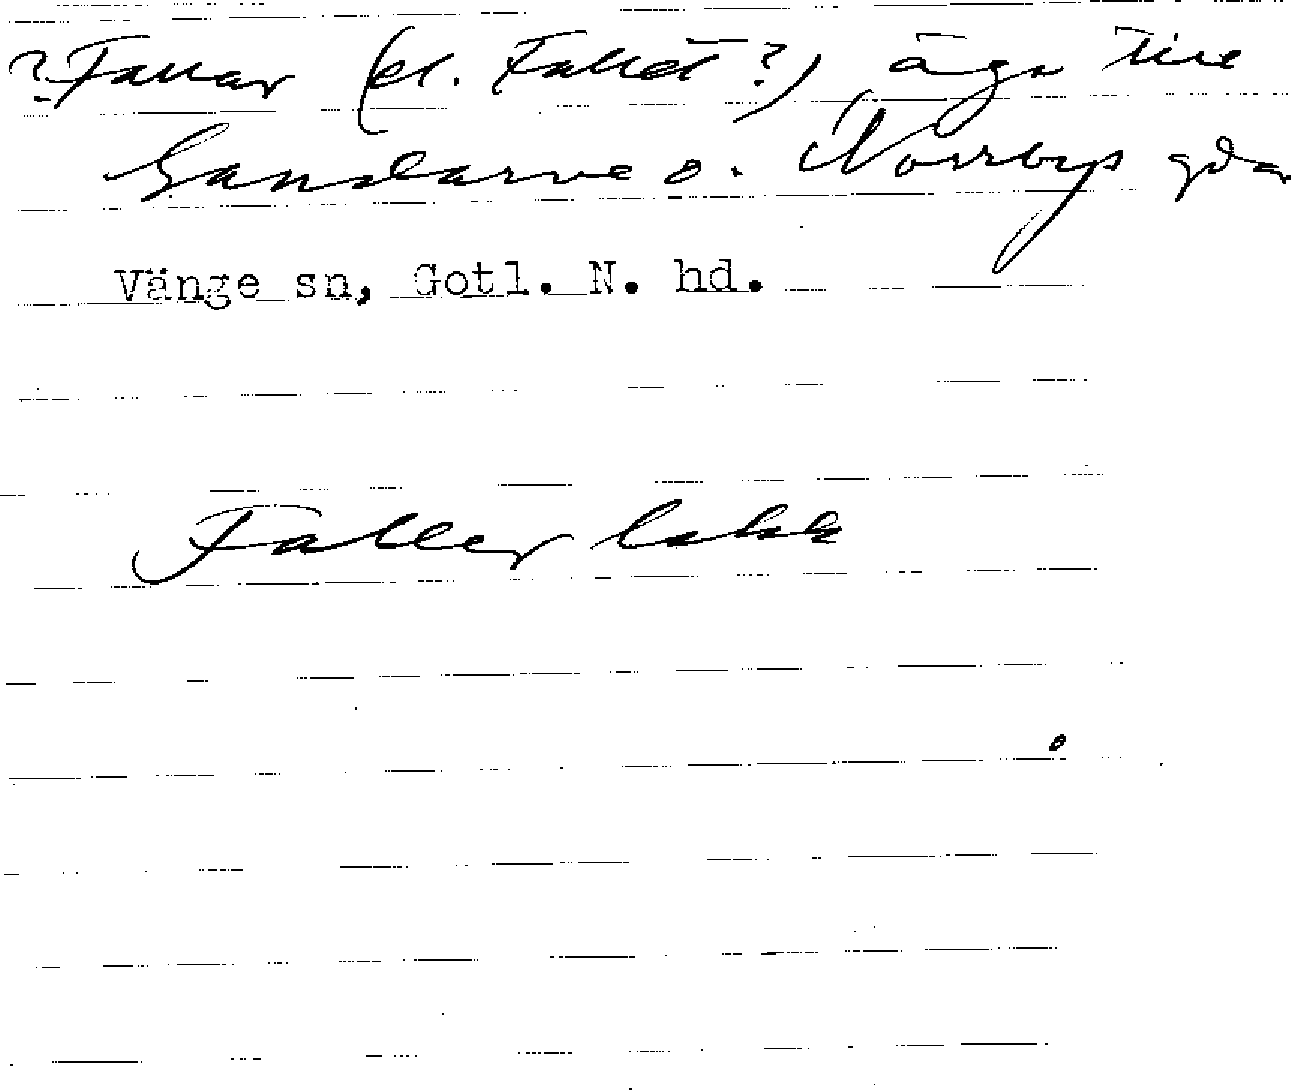 ? Fallar (el. Fallet?) äga till
Gandarve o. Norrbys gdar
Vänge sn, Gotl. N. hd.
Faller